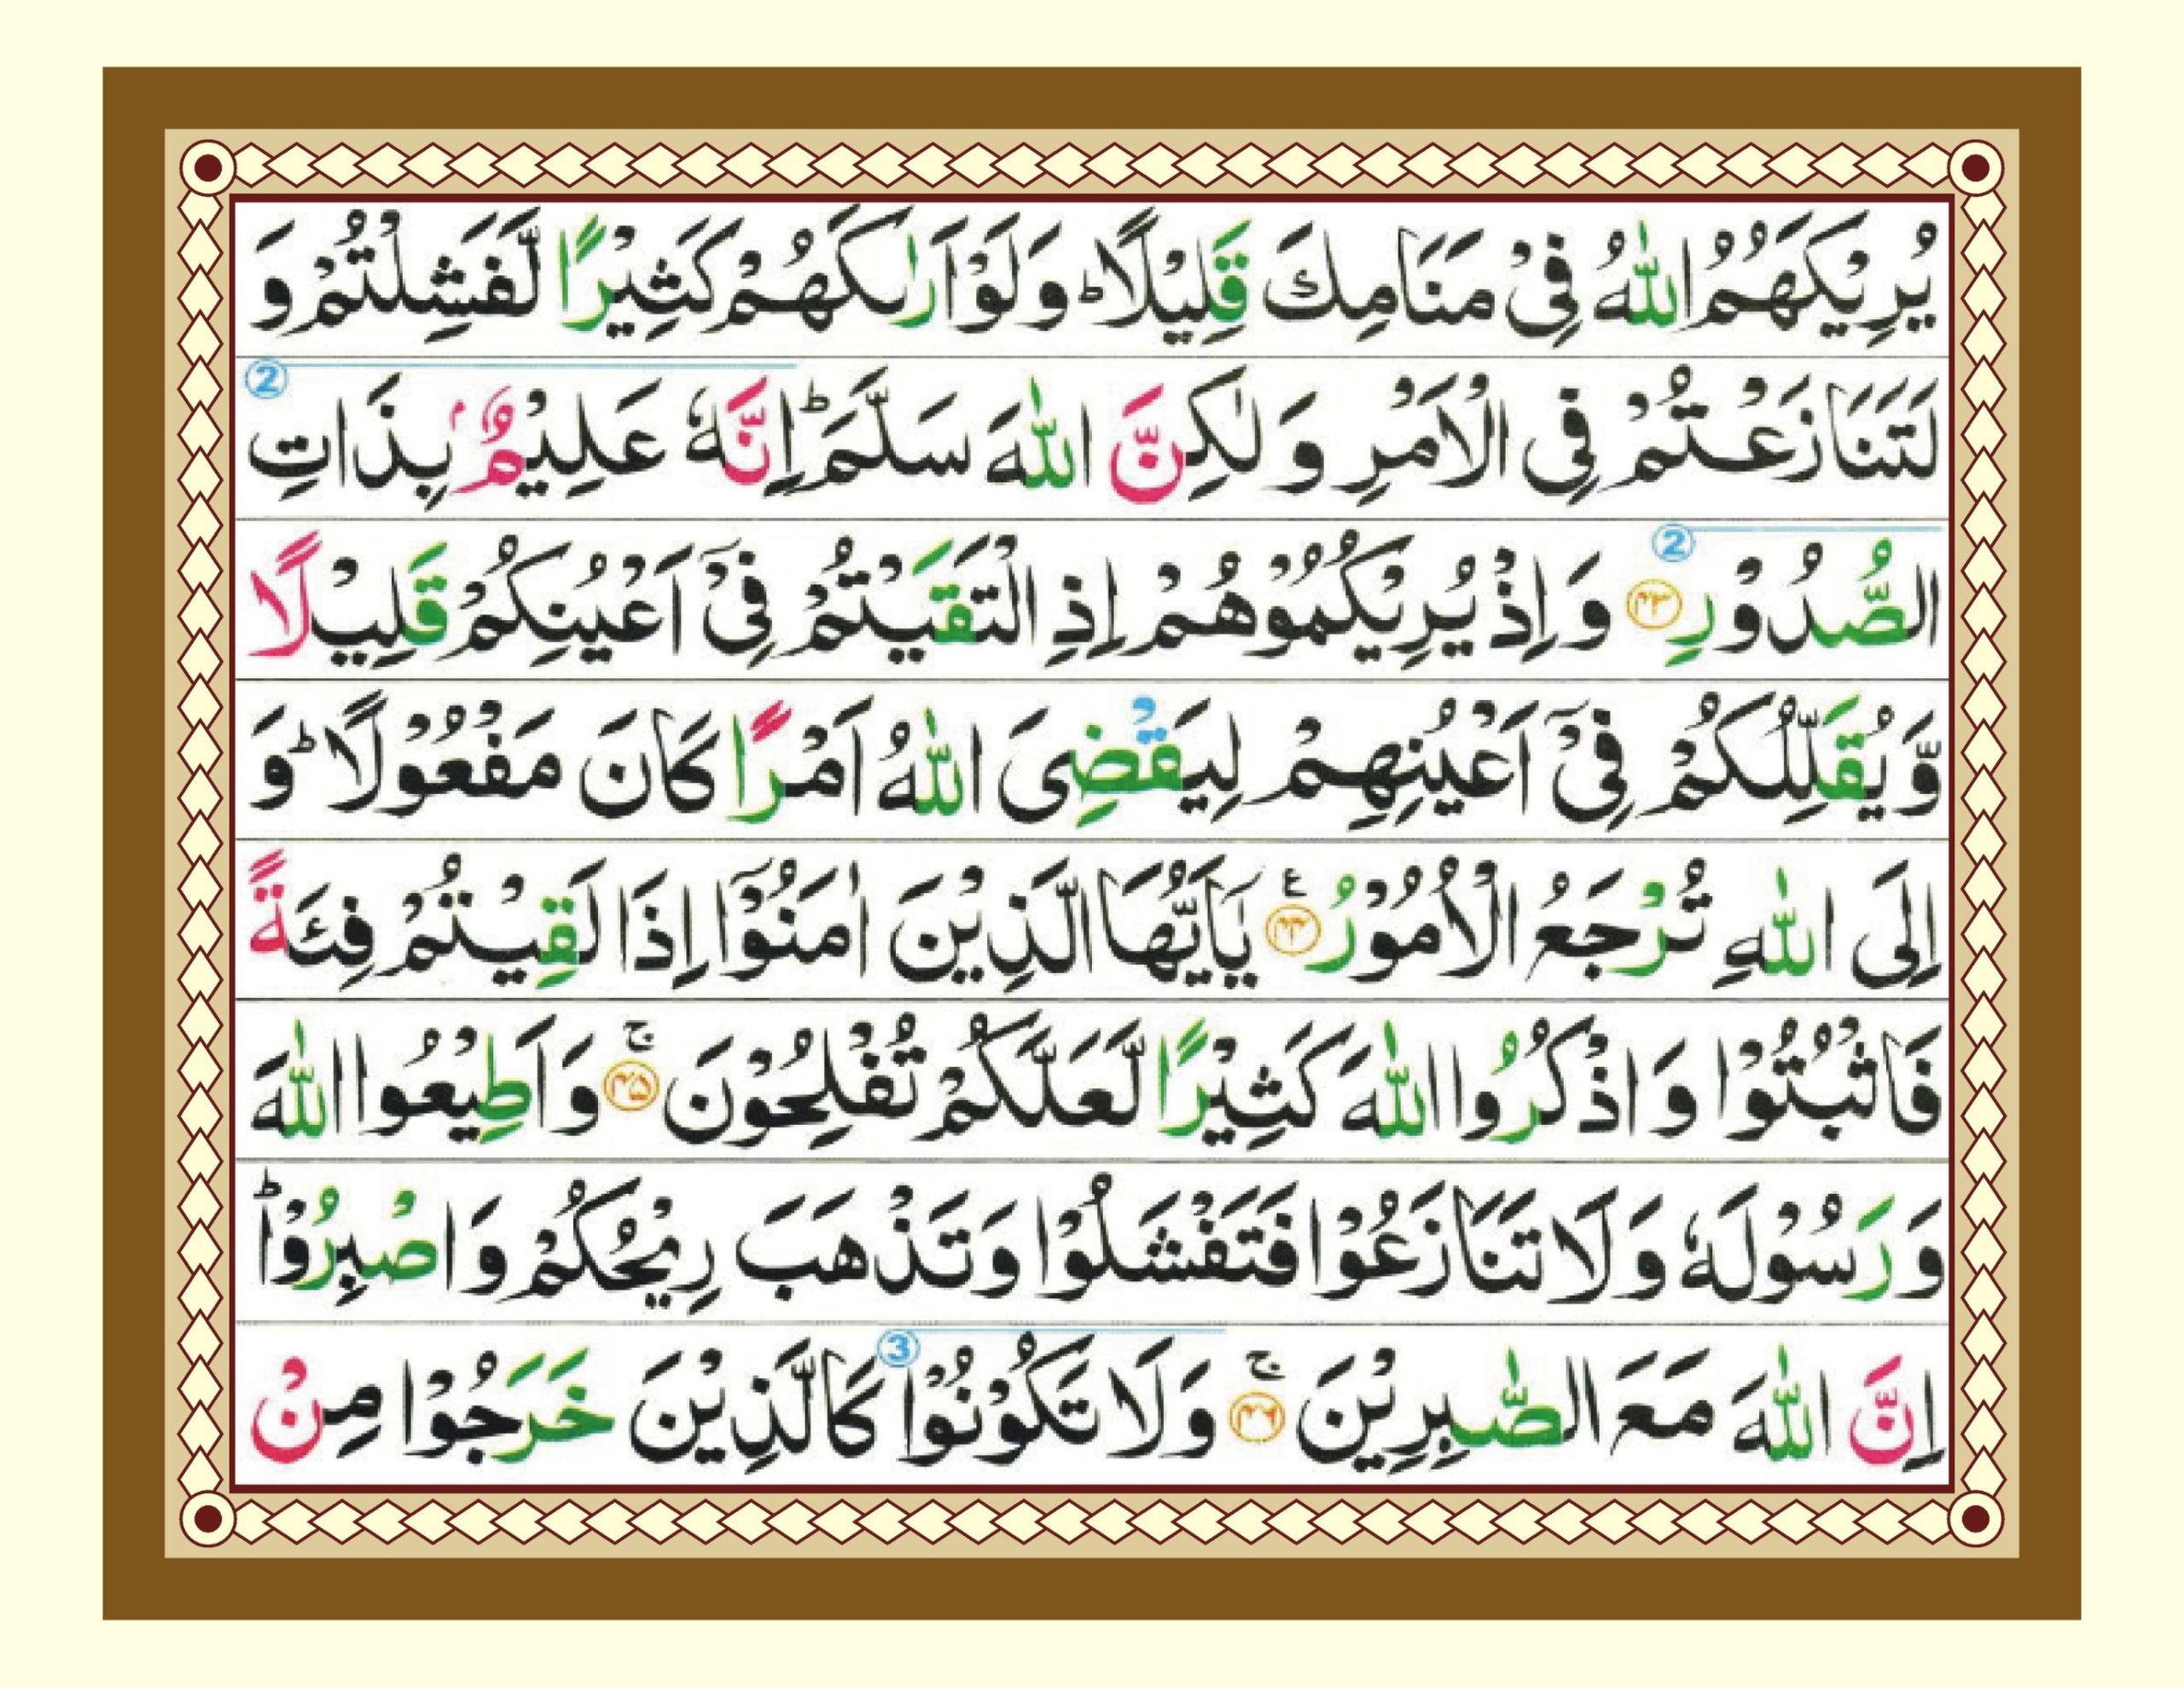 يُرِيْكَهُمُ اللّٰهُ فِيْ مَنَامِكَ قَلِيْلًا ؕ وَلَوْ اَرٰىكَهُمْ كَثِيْرًا لَّفَشِلْتُمْ وَ
لَتَنَازَعْتُمْ فِى الْاَمْرِ وَلٰكِنَّ اللّٰهَ سَلَّمَ ؕ اِنَّهٗ عَلِيْمٌۢ بِذَاتِ ②
الصُّدُوْرِ ② ﴿۴۳﴾ وَاِذْ يُرِيْكُمُوْهُمْ اِذِ الْتَقَيْتُمْ فِيْۤ اَعْيُنِكُمْ قَلِيْلًا
وَّيُقَلِّلُكُمْ فِيْۤ اَعْيُنِهِمْ لِيَقْضِىَ اللّٰهُ اَمْرًا كَانَ مَفْعُوْلًا ؕ وَ
اِلَى اللّٰهِ تُرْجَعُ الْاُمُوْرُ ﴿۴۴﴾ ع يٰۤاَيُّهَا الَّذِيْنَ اٰمَنُوْۤا اِذَا لَقِيْتُمْ فِئَةً
فَاثْبُتُوْا وَاذْكُرُوا اللّٰهَ كَثِيْرًا لَّعَلَّكُمْ تُفْلِحُوْنَ ۚ ﴿۴۵﴾ وَاَطِيْعُوا اللّٰهَ
وَرَسُوْلَهٗ وَلَا تَنَازَعُوْا فَتَفْشَلُوْا وَتَذْهَبَ رِيْحُكُمْ وَاصْبِرُوْا ؕ
اِنَّ اللّٰهَ مَعَ الصّٰبِرِيْنَ ۚ ﴿۴۶﴾ وَلَا تَكُوْنُوْا ③ كَالَّذِيْنَ خَرَجُوْا مِنْ